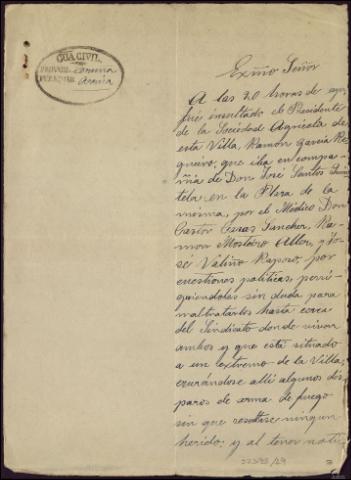 GUA CIVIL
Coruña
Arzúa
Exmo Señor
A las 20 horas de ayer
fué insultado el Presidente
de la Sociedad Agrícola de
esta Villa Ramon García Re
queiro, que iba en compa-
ñia de Don José Santos Quin
tela en la Plaza de la
misma, por el Médico Don
Castor Sanchez, Ra-
mon Mosteiro Allor, y Jo-
sé Valiño Raposo, por
cuestiones politicas, persi-
guiendolos sin duda para
maltratarlos hasta cerca
del Sindicato donde viven
ambos y que está situado
a un extremo de la Villa,
cruzándose alli algunos dis
paros de arma de fuego
sin que resultase ningun
herido; y al tener noti-